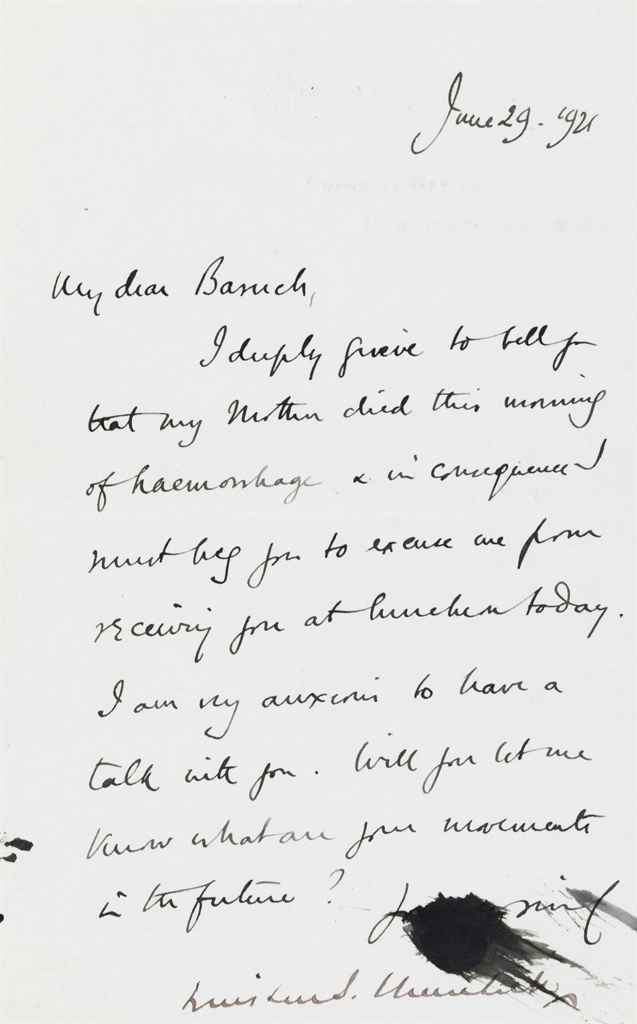 June 29. 1921
My dear Baruch,
I deeply grieve to tell you
that my Mother died this morning
of haemorrhage & in consequence I
must beg you to excuse me from
receiving you at luncheon today.
I am very anxious to have a
talk with you. Will you let me
know what are your movements
in the future?
Winston S. Churchill